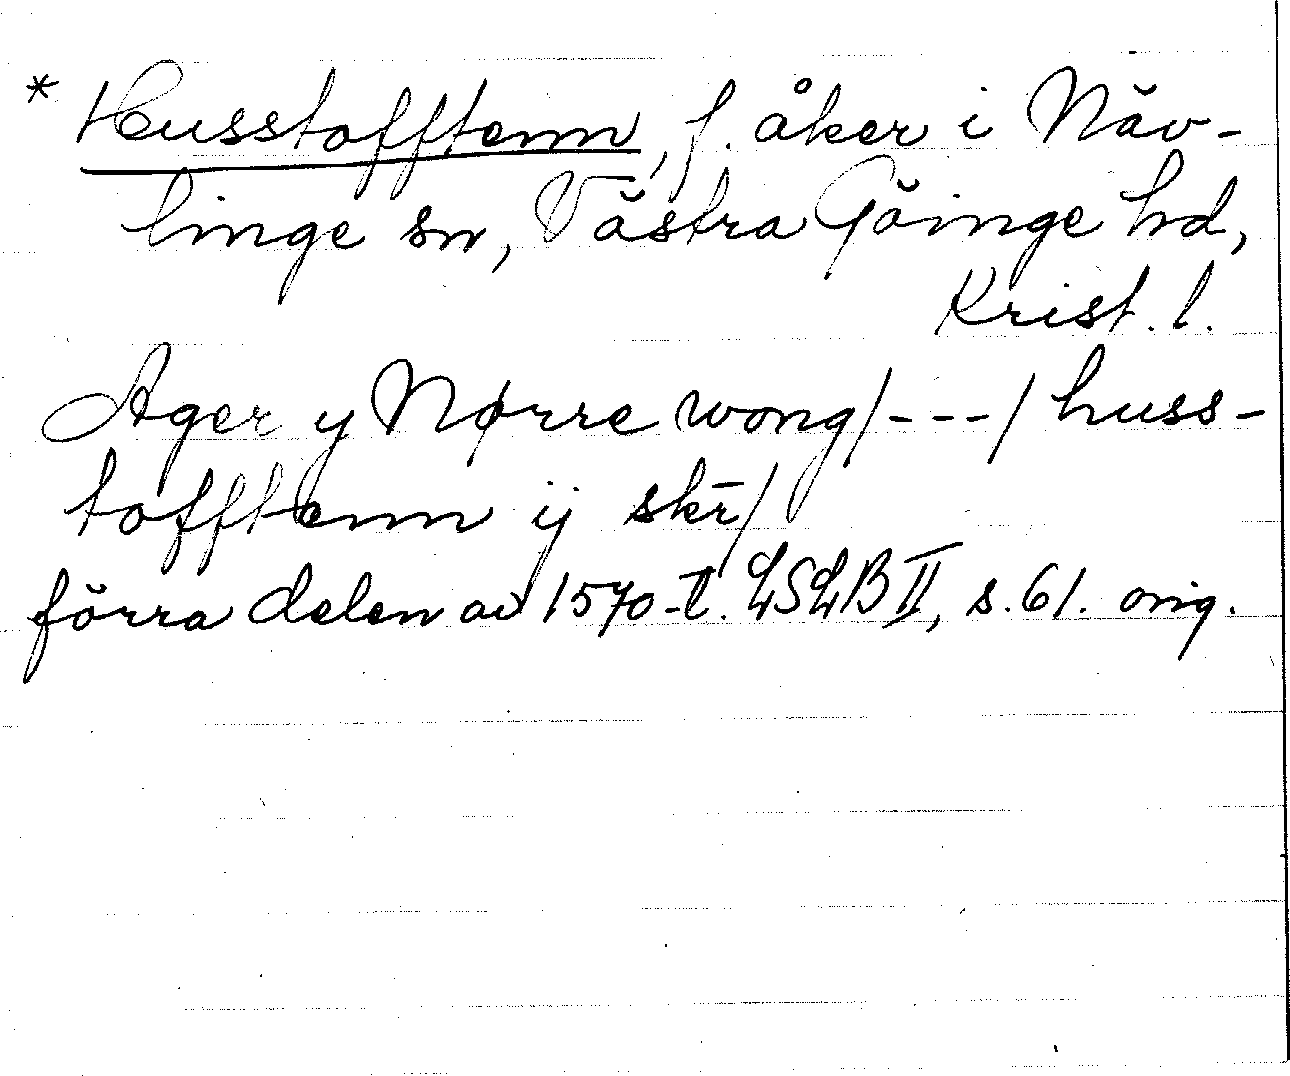 * Husstofftenn, f. åker i Näv-
linge sn, Västra Göinge hd,
Krist. l.
Ager y Nørre wong/---/huss-
tofftenn ij skr̄/
förra delen av 1570-t. LSLB II, s. 61. orig.